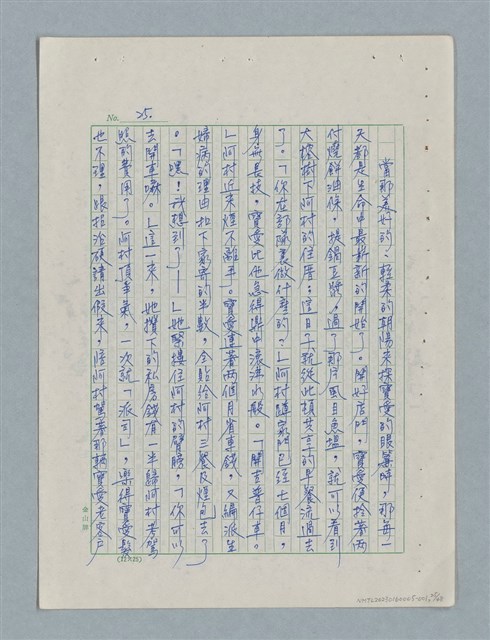 No. 25.
當那美好的、輕柔的朝陽來探寶愛的眼簾時，那每一
天都是生命中最新新的開始了。開好店門，寶愛便拎著兩
付燒餅油條，提鍋豆漿，過了那片風目魚塭，就可以看到
大榕樹下阿村的住厝；這日子就從此頓共享的早餐流過去
了。「你在部隊裏做什麼的？」阿村離家門已經七個月，
身無長技，寶愛比他急得鼎中滾沸水般。「開吉普仔車。
」阿村近來煙不離手。寶愛連著兩個月省專錢，又編派生
婦病的理由扣下寄家的半數，全貼給阿村三餐及煙包去了
。「嘿！我想到了——」她緊摟住阿村的臂膀，「你可以
去開車嘛。」這一來，她攢下的私房錢有一半歸阿村考駕
照的費用了。阿村頂爭氣，一次就「派司」，樂得寶愛髮
也不理，跟招治硬請出假來，陪阿村駕著那輛寶愛老客戶
(12×25)